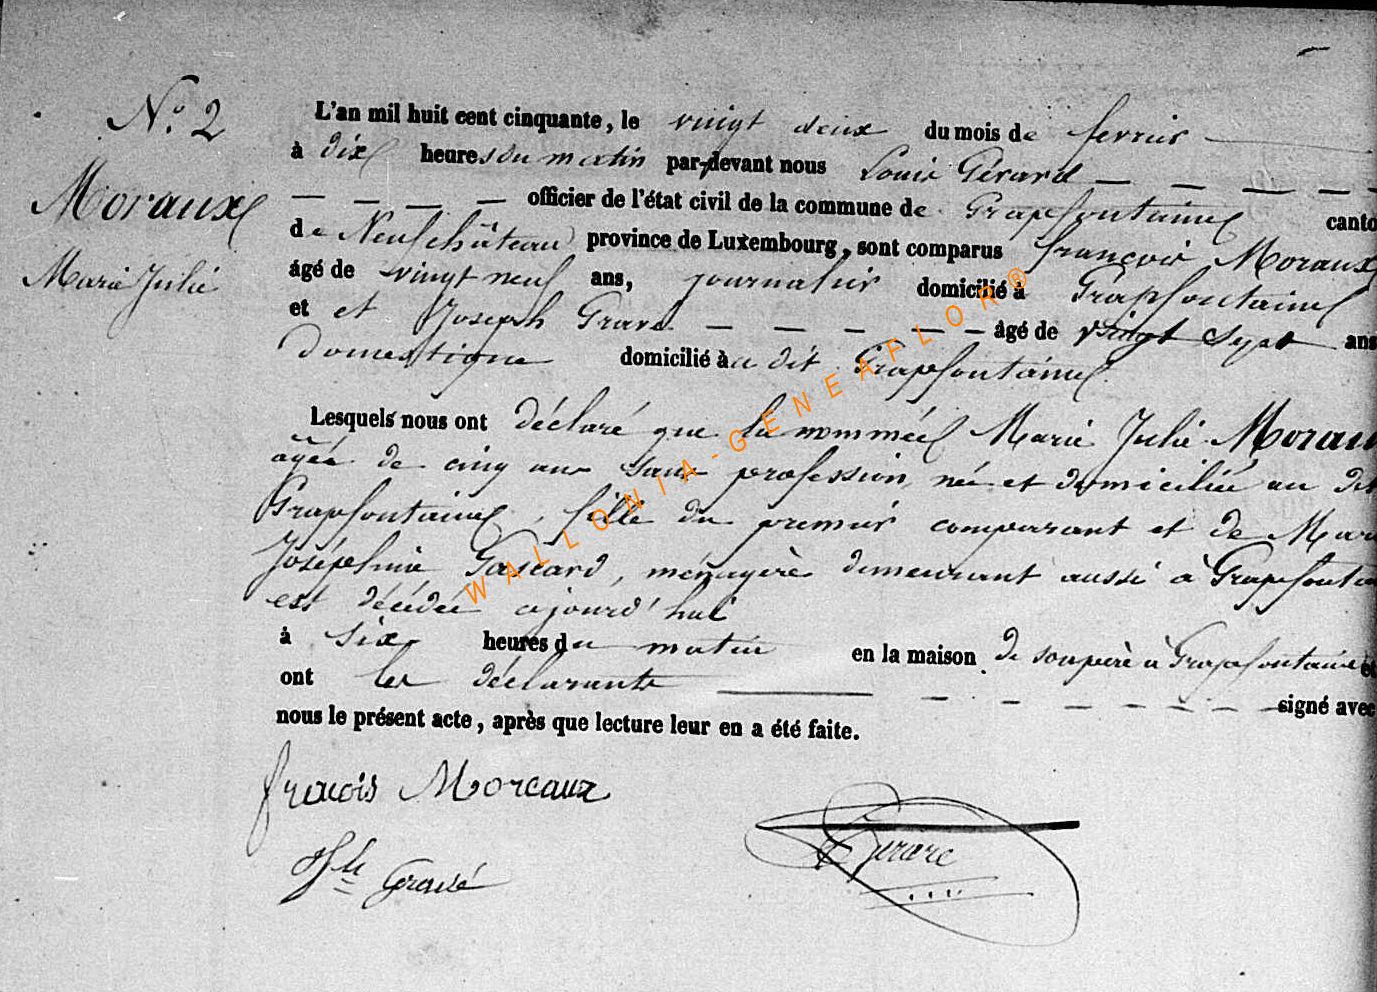 N.º 2
Moraux
Marie Julie
L'an mil huit cent cinquante, le vingt deux du mois de fevrier
à dix heures du matin par-devant nous Louis Gérard
officier de l'état civil de la commune de Grapfontaine canto
de Neufchâteau province de Luxembourg, sont comparus françois Moraux
âgé de vingt neuf ans, journalier domicilié à Grapfontaine
et et Joseph Gravé âgé de vingt sept ans
Domestique domicilié à au dit Grapfontaine
Lesquels nous ont déclaré que la nommée Marie Julie Moraux
âgée de cinq ans sans profession, née et domiciliée au dit
Grapfontaine, fille du premier comparant et de Marie
Joséphine Gascard, ménagère demeurant aussi à Grapfontai
est décédée ajourd'hui
à six heures du matin en la maison de son père à Grapfontaine et
ont les déclarants signé avec
nous le présent acte, après que lecture leur en a été faite.
francois Moreaux
Gravé
Gerard
WALLONIA-GENEAFLOR®